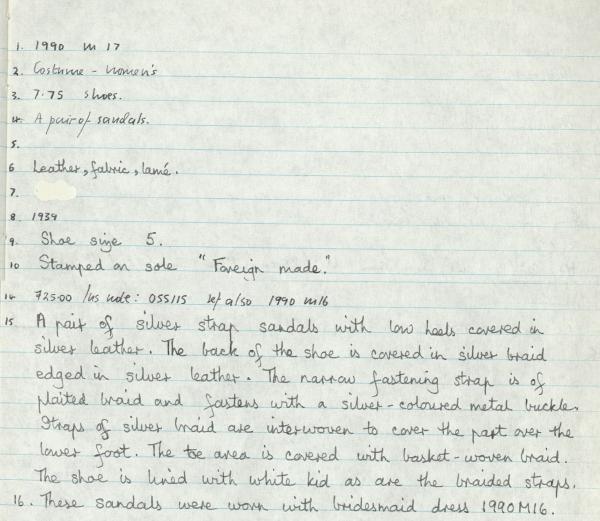 1. 1990 M 17
2. Costume - women's
3. 7.75 shoes.
4. A pair of sandals.
5.
6 Leather, fabric, lamé.
7.
8. 1939
9. Shoe size 5.
10 Stamped on sole "Foreign made."
14 72500 neg note: 055115 ref also 1990 M16
15 A pair of silver strap sandals with low heels covered in
silver leather. The back of the shoe is covered in silver braid
edged in silver leather. The narrow fastening strap is of
plaited braid and fastens with a silver-coloured metal buckle.
Straps of silver braid are interwoven to cover the part over the
lower foot. The toe area is covered with basket-woven braid.
The shoe is lined with white kid as are the braided straps.
16. These sandals were worn with bridesmaid dress 1990M16.